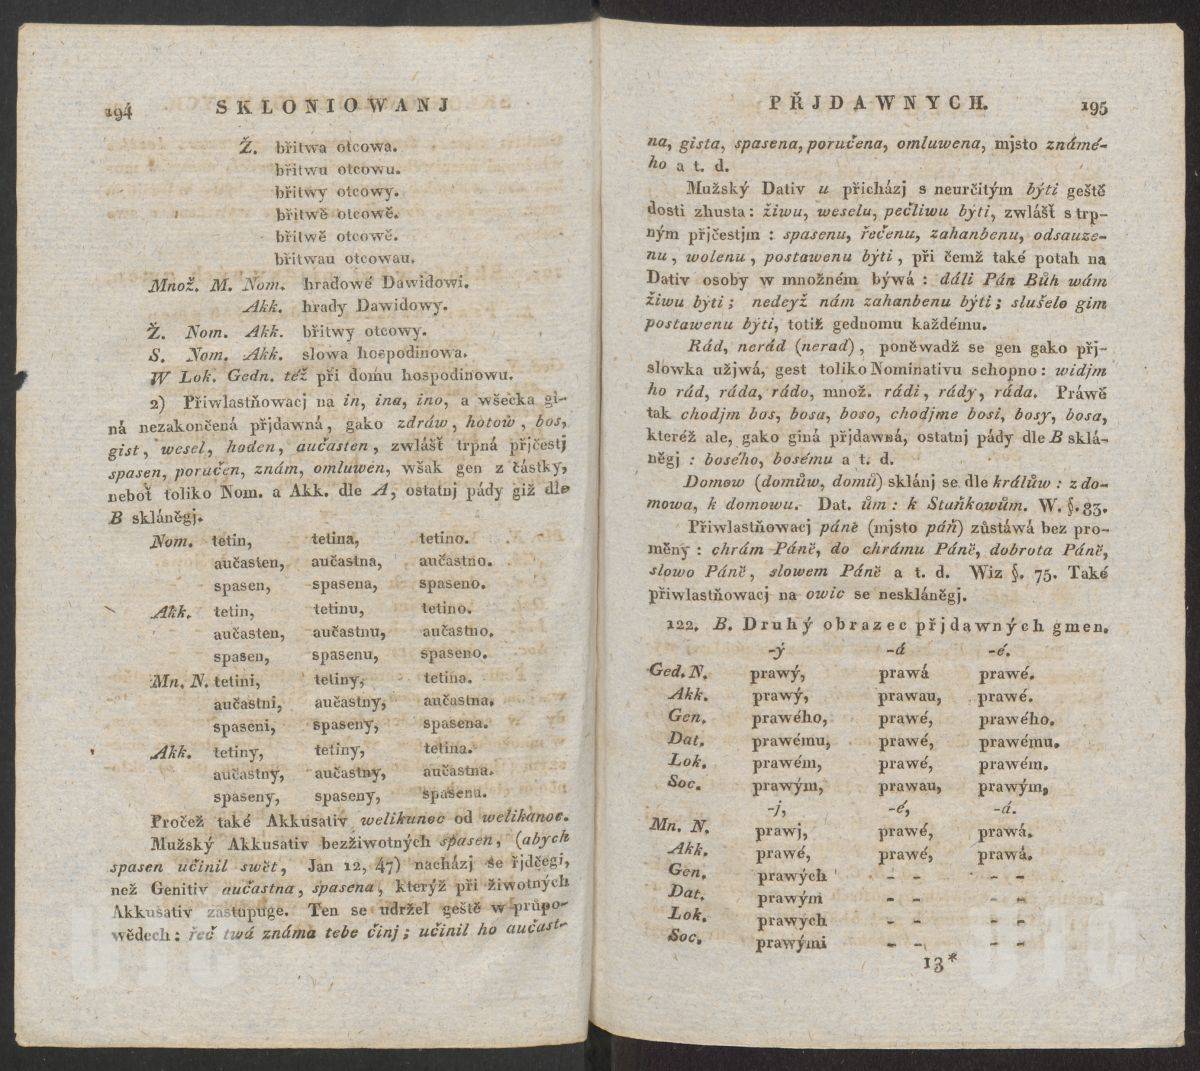 194 SKLONIOWANJ
Ž. břitwa otcowa.
břitwu otcowu.
břitwy otcowy.
břitwě otcowě.
břitwě otcowě.
břitwau otcowau.
Množ. M. Nom. hradowé Dawidowi.
Akk. hrady Dawidowy.
Ž. Nom. Akk. břitwy otcowy.
S. Nom. Akk. slowa hospodinowa.
W Lok. Gedn. též při domu hospodinowu.
2) Přiwlastňowacj na in, ina, ino, a wšecka gi-
ná nezakončená přjdawná, gako zdráw, hotow, bos,
gist, wesel, hoden, aučasten, zwlášť trpná přjčestj
spasen, poručen, znám, omluwen, wšak gen z částky,
neboť toliko Nom. a Akk. dle A, ostatnj pády giž dle
B skláněgj.
Nom. tetin, tetina, tetino.
aučasten, aučastna, aučastno.
spasen, spasena, spaseno.
Akk. tetin, tetinu, tetino.
aučasten, aučastnu, aučastno.
spasen, spasenu, spaseno.
Mn. N. tetini, tetiny, tetina.
aučastni, aučastny, aučastna.
spaseni, spaseny, spasena.
Akk. tetiny, tetiny, tetina.
aučastny, aučastny, aučastna.
spaseny, spaseny, spasena.
Pročež také Akkusativ welikunoc od welikánoc.
Mužský Akkusativ bezžiwotných spasen, (abych
spasen učinil swět, Jan 12, 47) nacházj se řjdčegi,
než Genitiv aučastna, spasena, kterýž při žiwotných
Akkusativ zastupuge. Ten se udržel geště w průpo-
wědech: řeč twá známa tebe činj; učinil ho aučast-
PŘJDAWNYCH. 195
na, gista, spasena, poručena, omluwena, mjsto známé-
ho a t. d.
Mužský Dativ u přicházj s neurčitým býti geště
dosti zhusta: žiwu, weselu, pečliwu býti, zwlášť s trp-
ným přjčestjm: spasenu, řečenu, zahanbenu, odsauze-
nu, wolenu, postawenu býti, při čemž také potah na
Dativ osoby w množném býwá: dáli Pán Bůh wám
žiwu býti; nedeyž nám zahanbenu býti; slušelo gim
postawenu býti, totiž gednomu každému.
Rád, nerád (nerad), poněwadž se gen gako přj-
slowka užjwá, gest toliko Nominativu schopno: widjm
ho rád, ráda, rádo, množ. rádi, rády, ráda. Práwě
tak chodjm bos, bosa, boso, chodjme bosi, bosy, bosa,
kteréž ale, gako giná přjdawná, ostatnj pády dle B sklá-
něgj: bosého, bosému a t. d.
Domow (domůw, domů) sklánj se dle králůw: z do-
mowa, k domowu. Dat. ům: k Staňkowům. W. §. 83.
Přiwlastňowacj páně (mjsto páň) zůstáwá bez pro-
měny: chrám Páně, do chrámu Páně, dobrota Páně,
slowo Páně, slowem Páně a t. d. Wiz §. 75. Také
přiwlastňowacj na owic se neskláněgj.
122. B. Druhý obrazec přjdawných gmen.
-ý -á -é.
Ged. N. prawý, prawá prawé.
Akk. prawý, prawau, prawé.
Gen. prawého, prawé, prawého.
Dat. prawému, prawé, prawému.
Lok. prawém, prawé, prawém.
Soc. prawým, prawau, prawým,
-j, -é, -á.
Mn. N. prawj, prawé, prawá.
Akk. prawé, prawé, prawá.
Gen. prawých - - - -
Dat. prawým - - - -
Lok. prawých - - - -
Soc. prawými - - - -
13*